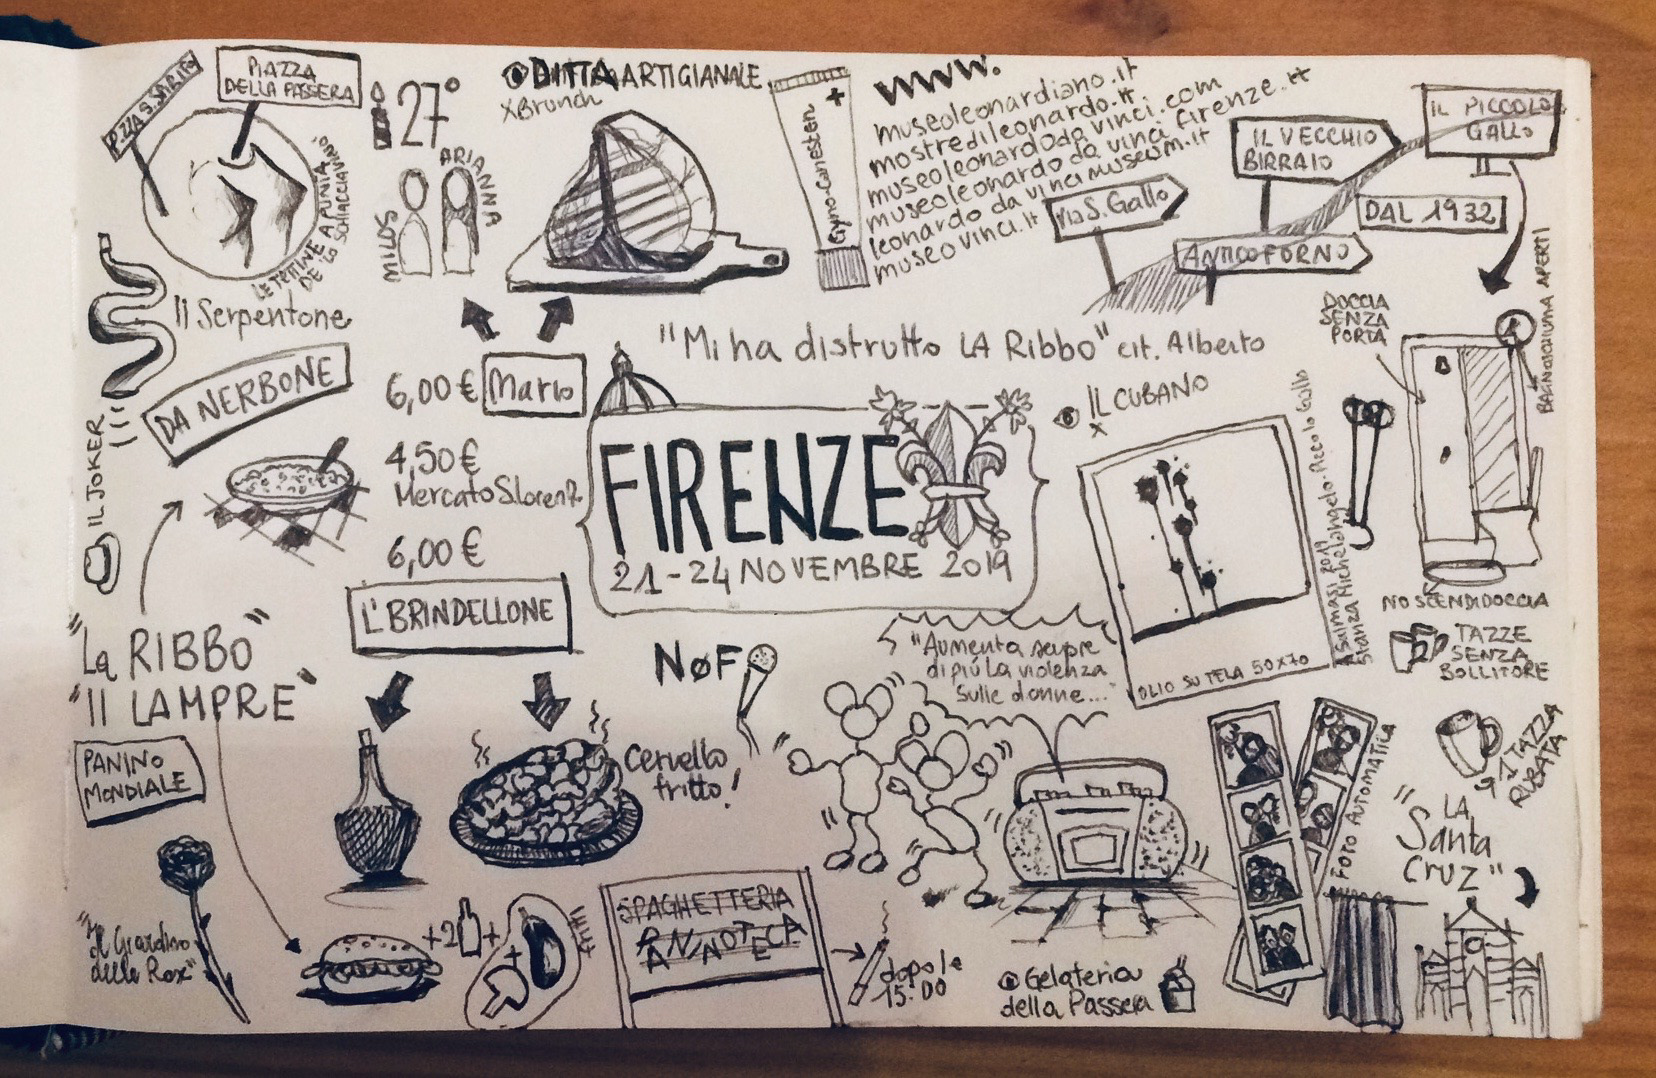 P.ZZA S. SPIRITO
PIAZZA
DELLA PASSERA
LE TETTINE A PUNTA
DE LO SCHIACCIAVINO
27°
MILOS
ARIANNA
DITTA ARTIGIANALE
x Brunch
Gyno-Canesten
www.
museoleonardiano.it
mostredileonardo.it
museoleonardodavinci.com
museoleonardo da vinci firenze.it
leonardo da vinci museum.it
museo vinci.it
Via S. Gallo
IL VECCHIO
BIRRAIO
IL PICCOLO
GALLO
DAL 1932
ANTICO FORNO
Il Serpentone
IL JOKER
DA NERBONE
6,00 €
Mario
4,50 €
Mercato S.Lorenz.
6,00 €
L'BRINDELLONE
"Mi ha distrutto LA Ribbo" cit. Alberto
FIRENZE
21-24 NOVEMBRE 2019
IL CUBANO
x
DOCCIA
SENZA
PORTA
BAGNOSCHIUMA APERTI
Stanza Michelangelo. Piccolo Gallo
OLIO SU TELA 50x70
NO SCENDIDOCCIA
TAZZE
SENZA
BOLLITORE
1 TAZZA
RUBATA
"La RIBBO"
"Il LAMPRE"
PANINO
MONDIALE
"Il Giardino
delle Rose"
NøF
Cervello
fritto!
"Aumenta sempre
di più la violenza
sulle donne..."
FOTO AUTOMATICA
"LA
Santa
CRUZ"
+2
+
+
SPAGHETTERIA
PANINOTECA
dopo le
15:00
Gelateria
della Passera